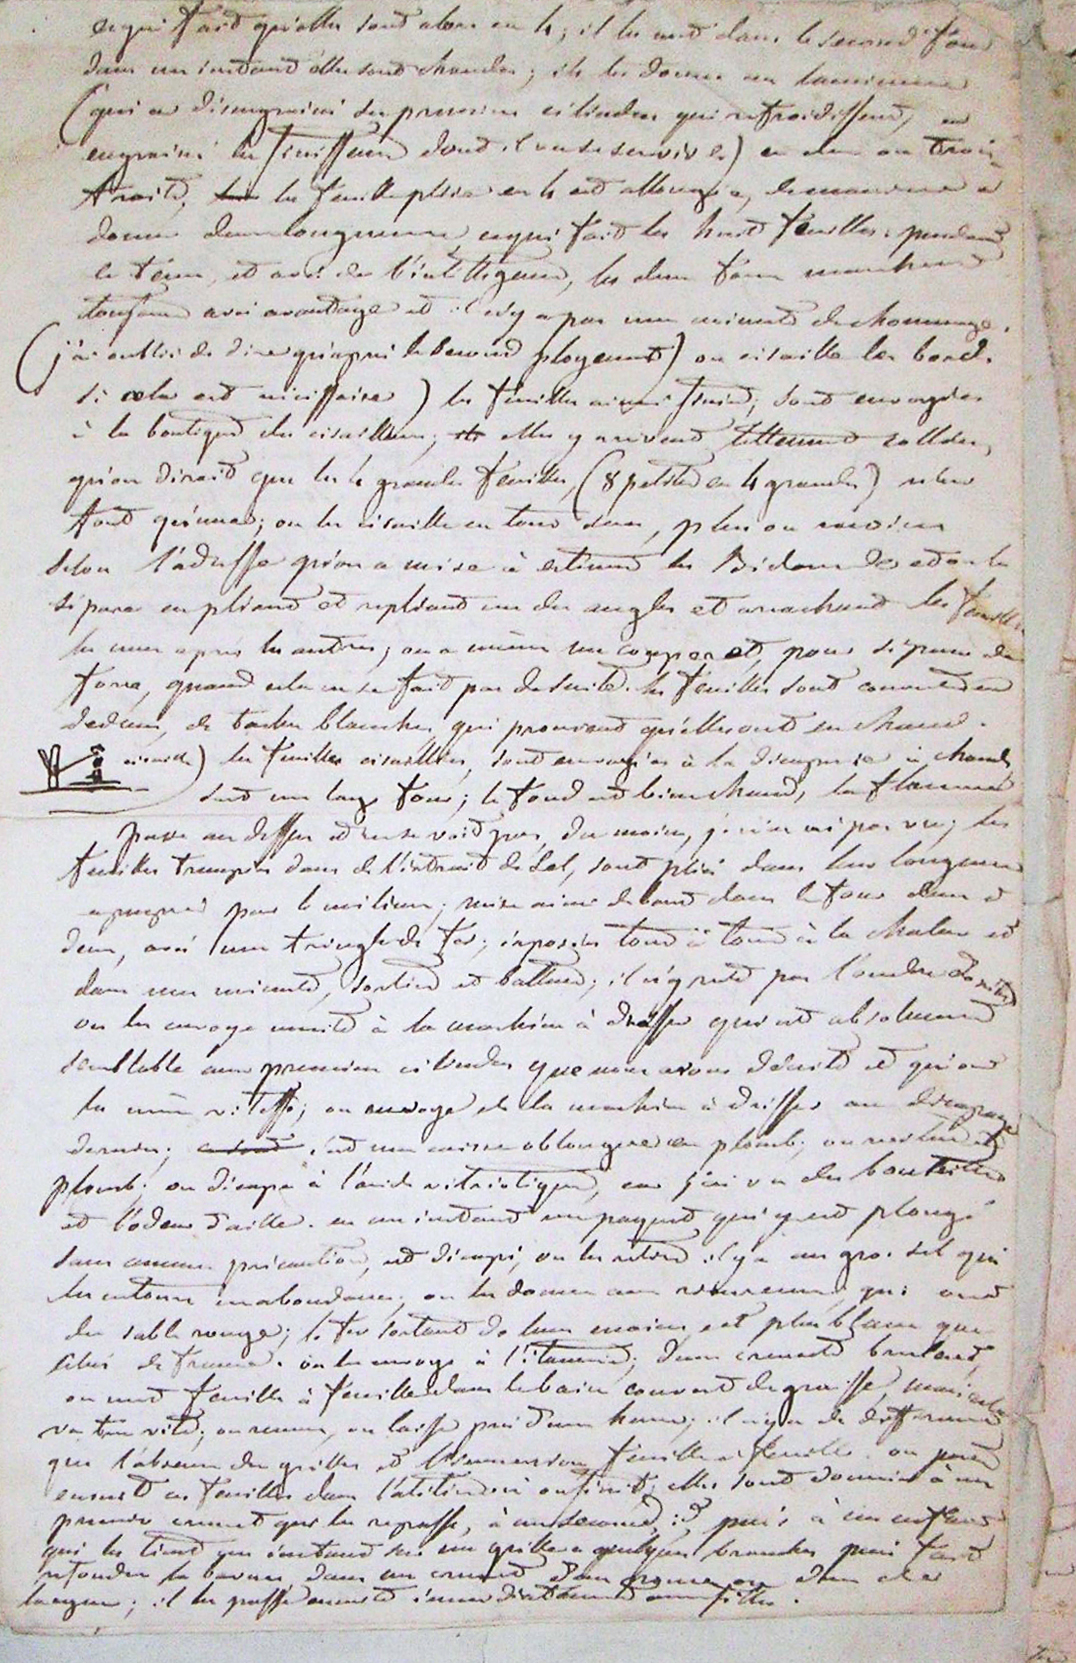 ce qui fait qu'elles sont alors en 4; il les met dans le second four
dans un instant elles sont chaudes; ils les donne au lamineur
(qui a désengrainé les premiers cilindres qui refroidissent, et
engrainé les finisseurs dont il va se servir) en deux ou trois
traits, la feuille pliée en 4 est allongée, de manière a
donner deux longueurs, ce qui fait les huit feuilles. pendant
ce tems, et avec de l'intelligence, les deux fours marchent
toujours avec avantage et il n'y a pas une minute de chommage.
(j'ai oublié de dire qu'après le second ployement) on cisaille les bords
si cela est nécessaire) les feuilles ainsi finies, sont envoyées
à la boutique des cisailleurs; elles y arrivent tellement collées,
qu'on dirait que les 4 grandes feuilles, (8 petites en 4 grandes) n'en
font qu'une; on les cisaille en tous sens, plus ou moins
selon l'adresse qu'on a mise à étirer les Bidons et on les
sépare en pliant et repliant un des angles et arrachant les feuilles
les unes après les autres; on a même un couperet, pour séparer de
force, quand cela ne se fait pas de suite. les feuilles sont couvertes en
dedans, de taches blanches qui prouvent qu'elles ont eu chaud.
cisaille) les feuilles cisaillées, sont envoyées à la décaperie à chaud,
c'est un large four; le fond est bien chaud, la flamme
passe au dessus et ne se voit pas, du moins, je n'en ai pas vu; les
feuilles trempées dans de l'extrait de sel, sont pliées dans leur longueur
par le milieu; mises ainsi debout dans le four deux à
deux, avec une tringle de fer; exposées tout à tour à la chaleur et
dans une minute, sorties et battues; il n'y reste pas l'ombre d'oxide
on les envoye ensuite à la machine à dresser qui est absolument
semblable aux premiers cilindres que nous avons décrits et qui ont
la même vitesse; on envoye de la machine à dresser au décapage
dernier; c'est une caisse oblongue en plomb;
plomb; on décape à l'acide vitriolique, car j'ai vu des bouteilles
et l'odeur d'ailleurs. en un instant un paquet qui y est plongé
sans aucune précaution, est décapé, on les retire il y a un gros sel qui
les entoure en abondance; on les donne aux récureurs, qui ont
du sable rouge; le fer sortant de leurs mains est plus blanc que
celui de france. on les envoye à l'étamerie; d'un creuset brulant,
on met feuille à feuille dans le bain couvert de graisse,
va très vite; on remue, on laisse près d'une heure; il n'y a de différence
que l'absence des grilles et l'immersion feuille a feuille. on prend
ensuite ces feuilles dans elles sont données à un
premier creuset qui les repasse, à un second, id, puis à un enfant
qui les tient un instant sur une grille a quelques branches puis fait
refondre la bavure dans un creuset
longueur; il les passe ensuite immédiatement aux filles.